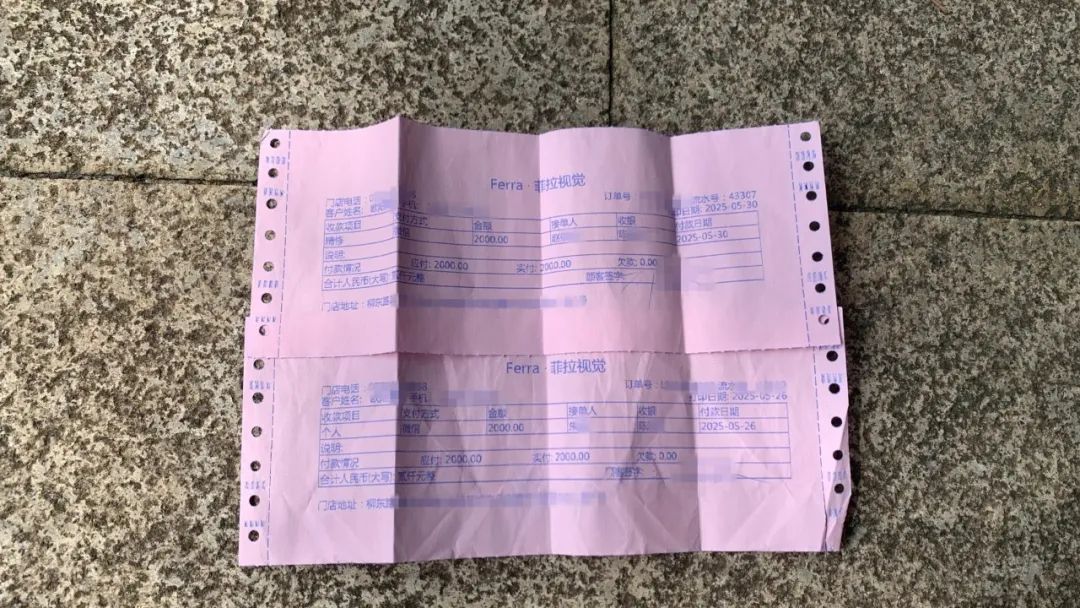 Ferra · 菲拉视觉
门店电话： 订单号 流水号：43307
客户姓名： 手机 印日期: 2025-05-30
收款项目 支付方式 金额 接单人 收银 付款日期
精修 微信 2000.00 2025-05-30
说明:
付款情况 应付: 2000.00 实付: 2000.00 欠款: 0.00
合计人民币(大写) 贰仟元整 顾客签字:
门店地址：柳东路
Ferra · 菲拉视觉
门店电话： 订单号： 流水
客户姓名: 手机 打印日期: 2025-05-26
收款项目 支付方式 金额 接单人 收银 付款日期
个人 微信 2000.00 朱 陈 2025-05-26
说明:
付款情况 应付: 2000.00 实付: 2000.00 欠款: 0.00
合计人民币(大写): 贰仟元整 顾客签字:
门店地址：柳东路